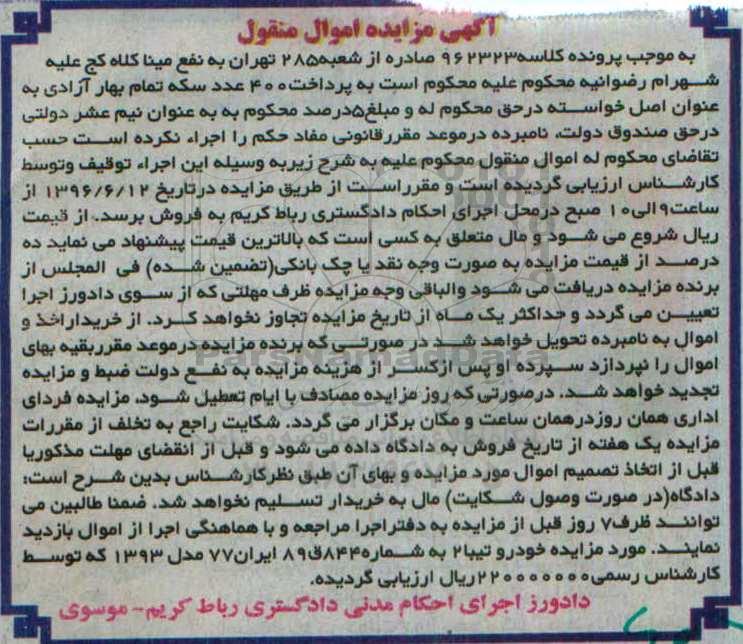 آگهی مزایده اموال منقول
به موجب پرونده کلاسه ۹۶۲۳۲۳ صادره از شعبه۲۸۵ تهران به نفع مینا کلاه کج علیه
شهرام رضوانیه محکوم علیه محکوم است به پرداخت۴۰۰ عدد سکه تمام بهار آزادی به
عنوان اصل خواسته درحق محکوم له و مبلغ۵درصد محکوم به به عنوان نیم عشر دولتی
درحق صندوق دولت، نامبرده درموعد مقررقانونی مفاد حکم را اجراء نکرده است حسب
تقاضای محکوم له اموال منقول محکوم علیه به شرح زیربه وسیله این اجراء توقیف وتوسط
کارشناس ارزیابی گردیده است و مقرراست از طریق مزایده درتاریخ ۱۳۹۶/۶/۱۲ از
ساعت۹الی۱۰ صبح درمحل اجرای احکام دادگستری رباط کریم به فروش برسد. از قیمت
ریال شروع می شود و مال متعلق به کسی است که بالاترین قیمت پیشنهاد می نماید ده
درصد از قیمت مزایده به صورت وجه نقد یا چک بانکی(تضمین شده) فی المجلس از
برنده مزایده دریافت می شود والباقی وجه مزایده ظرف مهلتی که از سوی دادورز اجرا
تعیین می گردد و حداکثر یک ماه از تاریخ مزایده تجاوز نخواهد کرد. از خریداراخذ و
اموال به نامبرده تحویل خواهد شد در صورتی که برنده مزایده درموعد مقرربقیه بهای
اموال را نپردازد سپرده او پس ازکسر از هزینه مزایده به نفع دولت ضبط و مزایده
تجدید خواهد شد. درصورتی که روز مزایده مصادف با ایام تعطیل شود، مزایده فردای
اداری همان روزدرهمان ساعت و مکان برگزار می گردد. شکایت راجع به تخلف از مقررات
مزایده یک هفته از تاریخ فروش به دادگاه داده می شود و قبل از انقضای مهلت مذکوریا
قبل از اتخاذ تصمیم اموال مورد مزایده و بهای آن طبق نظرکارشناس بدین شرح است:
دادگاه(در صورت وصول شکایت) مال به خریدار تسلیم نخواهد شد. ضمنا طالبین می
توانند ظرف۷ روز قبل از مزایده به دفتراجرا مراجعه و با هماهنگی اجرا از اموال بازدید
نمایند. مورد مزایده خودرو تیبا۲ به شماره۸۴۴ق۸۹ ایران۷۷ مدل ۱۳۹۳ که توسط
کارشناس رسمی۲۲۰۰۰۰۰۰۰ریال ارزیابی گردیده.
دادورز اجرای احکام مدنی دادگستری رباط کریم- موسوی
ParsNamadData